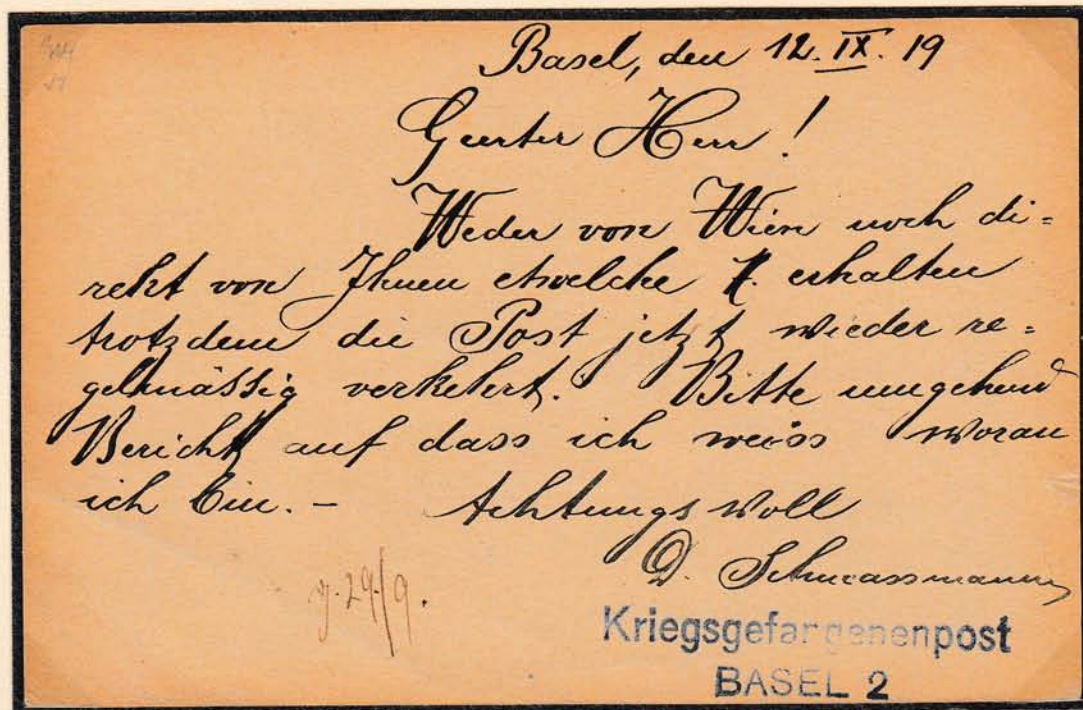 Basel, den 12. IX. 19
Geerter Herr!
Weder von Wien noch di=
rekt von Ihnen etwelche erhalten
trotzdem die Post jetzt wieder re=
gelmässig verkehrt. Bitte umgehend
Bericht auf dass ich weiss woran
ich bin. - Achtungsvoll
D. Schwassmann
29/9.
Kriegsgefangenenpost
BASEL 2